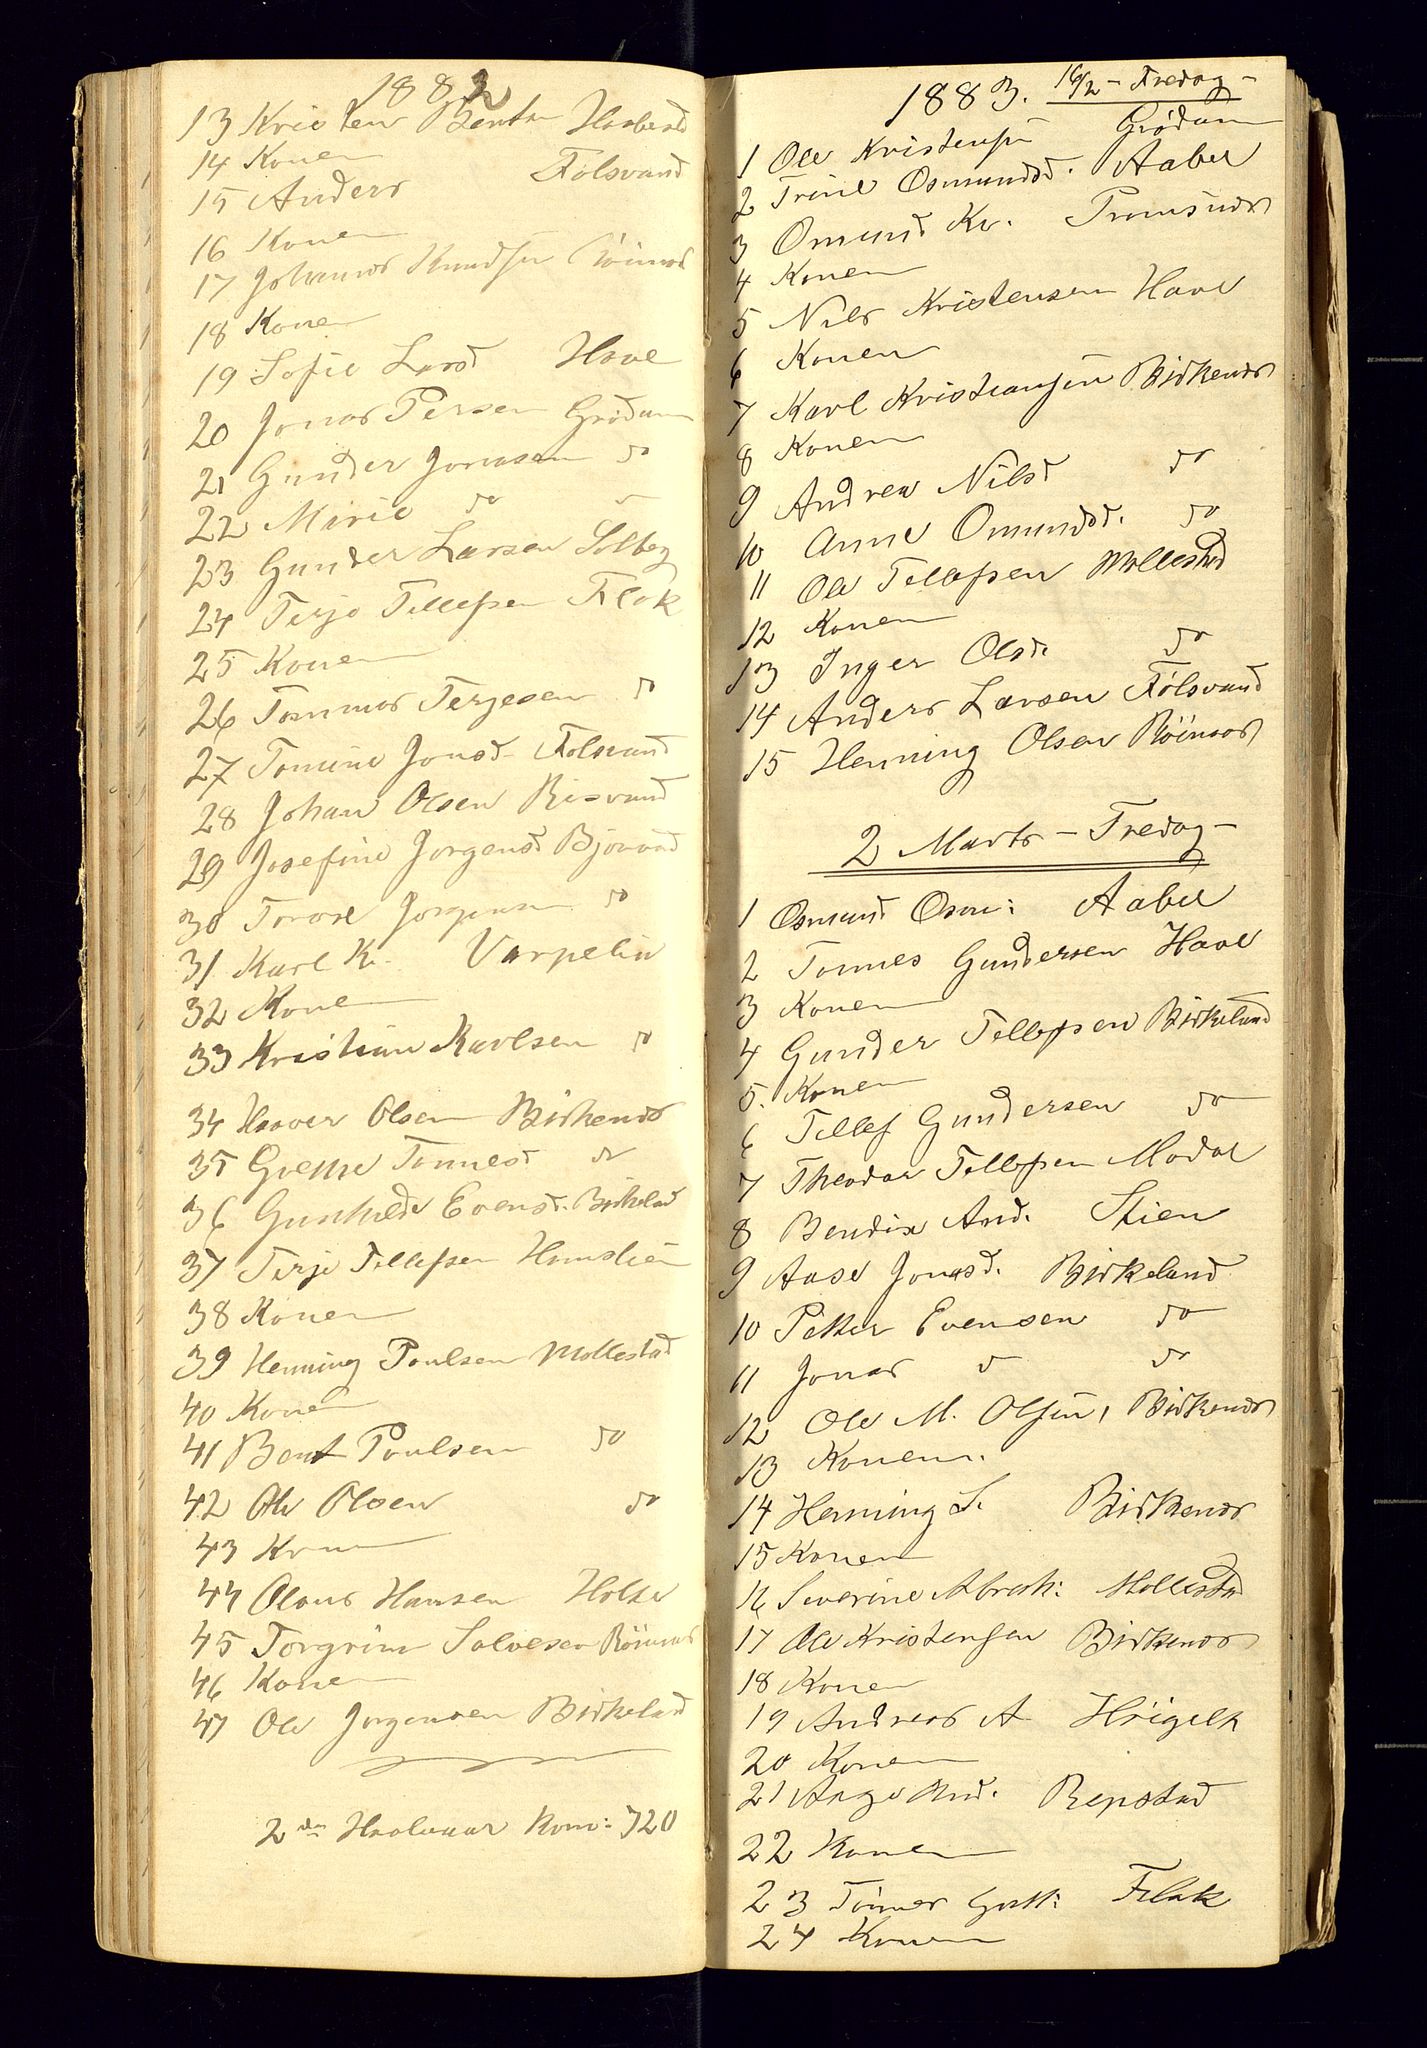 1882
13 Kristen Bents Haabesd
14 Konen
15 Anders Følsvand
16 Konen
17 Johannes Knudsen Röinaas
18 Konen
19 Sofie Larsd Have
20 Jonas Persen Grödum
21 Gunder Jonassen do
22 Mirie do
23 Gunder Larsen Solberg
24 Terje Tellefsen Flak
25 Konen
26 Tommas Terjesen do
27 Tomine Jonsd Fölsvand
28 Johan Olsen Risvand
29 Josefine Jorgensd Bjorvand
30 Jorgensen do
31 Karl K. Varpelin
32 Kone
33 Kristian Karlsen do
34 Haaver Olsen Birkenes
35 Grethe Tonnesd do
36 Gunhilde Evensd. Birkeland
37 Terje Tellefsen Hunslien
38 Konen
39 Henning Poulsen Mollestad
40 Konen
41 Bent Poulsen do
42 Ole Olsen do
43 Konen
44 Olaus Hansen Holte
45 Torgrim Salvesen Röinaas
46 Konen
47 Ole Jorgensen Birkeland
2den Halvaar Kom: 720
1883. 16/2 - Fredag -
1 Ole Kristensen Grödum
2 Trine Osmundsd. Aabel
3 Omund Kr. Tromsnes
4 Konen
5 Nils Kristensen Have
6 Konen
7 Karl Kristiansen Birkenes
8 Konen
9 Andrea Nilsd do
10 Anne Omundsd. do
11 Ole Tellefsen Mollestad
12 Konen
13 Inger Olsd. do
14 Anders Larsen Fölsvand
15 Henning Olsen Röinaas
2 Marts - Fredag -
1 Osmund Osm: Aabel
2 Tonnes Gundersen Have
3 Konen
4 Gunder Tellefsen Birkeland
5. Konen
6 Tellef Gundersen do
7 Theodor Tellefsen Modal
8 Bendix And. Stien
9 Aase Jonasd. Birkeland
10 Petter Evensen do
11 Jonas do do
12 Ole M. Olsen, Birkenes
13 Konen.
14 Henning S. Birkenes
15 Konen
16 Severine Abrah: Mollestad
17 Ole Kristensen Birkenes
18 Konen
19 Andreas A Höigilt
20 Konen
21 Aage And. Repstad
22 Konen
23 Tönnes Flak
24 Konen